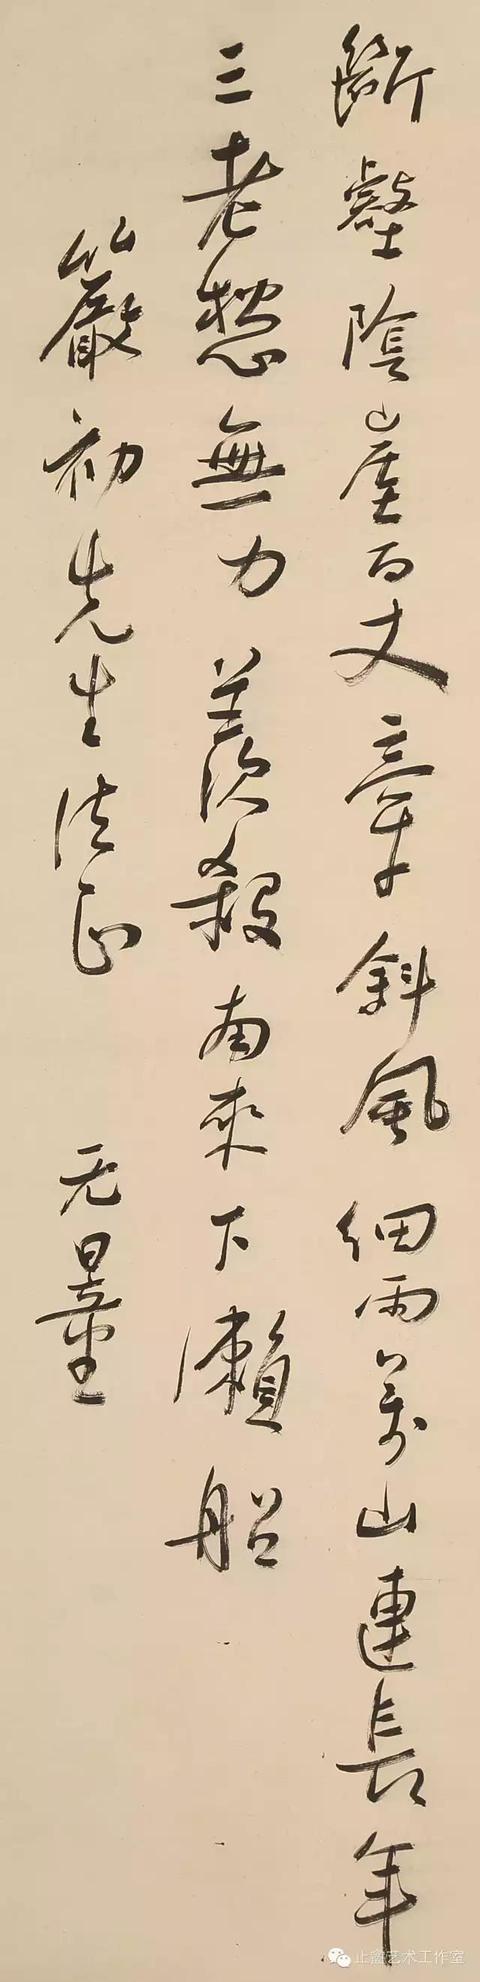 斷壑陰崖百丈牽斜風細雨萬山連長年
三老愁無力羨殺南來下瀨船
嚴初先生法正
无量
止盦艺术工作室